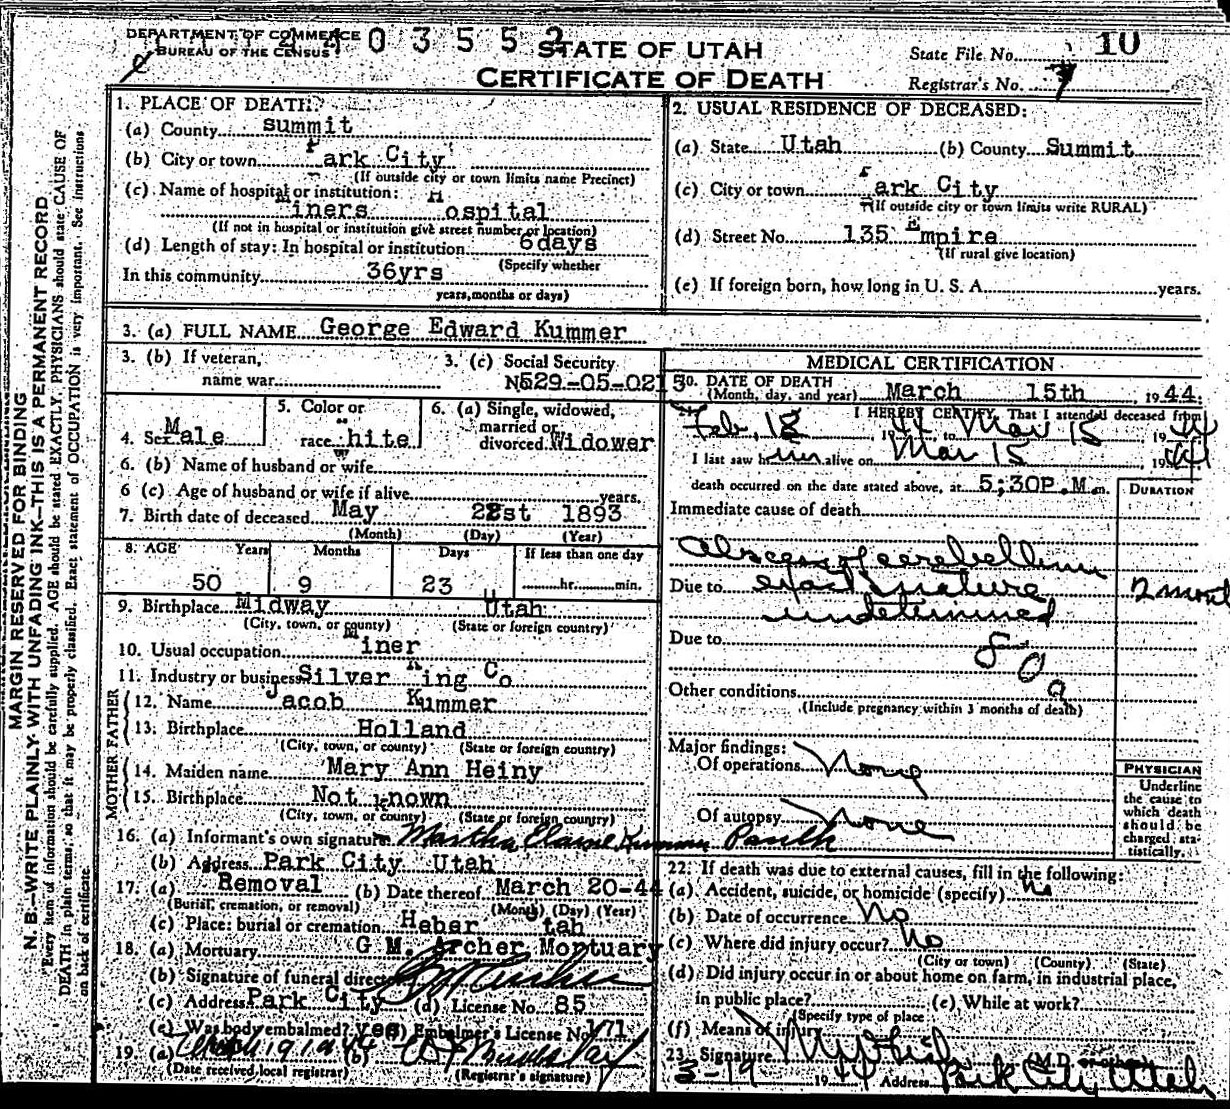 DEPARTMENT OF COMMERCE
BUREAU OF THE CENSUS
STATE OF UTAH
CERTIFICATE OF DEATH
State File No. 10
Registrar's No. 7
MARGIN RESERVED FOR BINDING
N. B.—WRITE PLAINLY WITH UNFADING INK—THIS IS A PERMANENT RECORD
Every item of information should be carefully supplied. AGE should be stated EXACTLY. PHYSICIANS should state CAUSE OF
DEATH in plain terms, so that it may be properly classified. Exact statement of OCCUPATION is very important. See instructions
on back of certificate.
1. PLACE OF DEATH:
(a) County summit
(b) City or town Park City
(If outside city or town limits name Precinct)
(c) Name of hospital or institution:
Miners Hospital
(If not in hospital or institution give street number or location)
(d) Length of stay: In hospital or institution 6days
(Specify whether
In this community 36yrs
years, months or days)
2. USUAL RESIDENCE OF DECEASED:
(a) State Utah (b) County Summit
(c) City or town Park City
(If outside city or town limits write RURAL)
(d) Street No. 135 Empire
(If rural give location)
(e) If foreign born, how long in U. S. A. years.
3. (a) FULL NAME George Edward Kummer
3. (b) If veteran,
name war
3. (c) Social Security
No. 529-05-0213
4. Sex Male
5. Color or
race White
6. (a) Single, widowed,
married or
divorced Widower
6. (b) Name of husband or wife
6 (c) Age of husband or wife if alive years.
7. Birth date of deceased May 21st 1893
(Month) (Day) (Year)
8. AGE Years Months Days If less than one day
50 9 23 hr. min.
9. Birthplace Midway Utah
(City, town, or county) (State or foreign country)
10. Usual occupation Miner
11. Industry or business Silver King Co
FATHER
12. Name Jacob Kummer
13. Birthplace Holland
(City, town, or county) (State or foreign country)
MOTHER
14. Maiden name Mary Ann Heiny
15. Birthplace Not known
(City, town, or county) (State or foreign country)
16. (a) Informant's own signature Martha Elaine Kummer Paulk
(b) Address Park City Utah
17. (a) Removal (b) Date thereof March 20-44
(Burial, cremation, or removal) (Month) (Day) (Year)
(c) Place: burial or cremation Heber Utah
18. (a) Mortuary G M. Archer Mortuary
(b) Signature of funeral director
(c) Address Park City (d) License No. 85
(e) Was body embalmed? yes (f) Embalmer's License No. 171
19. (a) (b)
(Date received local registrar) (Registrar's signature)
MEDICAL CERTIFICATION
20. DATE OF DEATH
(Month, day, and year) March 15th 1944
I HEREBY CERTIFY, That I attended deceased from
Feb. 18 1944 to Mar 15 1944
I last saw him alive on Mar 15 1944
death occurred on the date stated above, at 5;30P.M m.
DURATION
Immediate cause of death
Abscess of cerebellum
Due to exact nature 2 mont
undetermined
Due to
Other conditions
(Include pregnancy within 3 months of death)
Major findings:
Of operations None
Of autopsy None
PHYSICIAN
Underline
the cause to
which death
should be
charged sta-
tistically.
22. If death was due to external causes, fill in the following:
(a) Accident, suicide, or homicide (specify) No
(b) Date of occurrence No
(c) Where did injury occur? No
(City or town) (County) (State)
(d) Did injury occur in or about home on farm, in industrial place,
in public place? (e) While at work?
(Specify type of place
(f) Means of injury
23. Signature (M.D.
3-19 1944 Address Park City, Utah